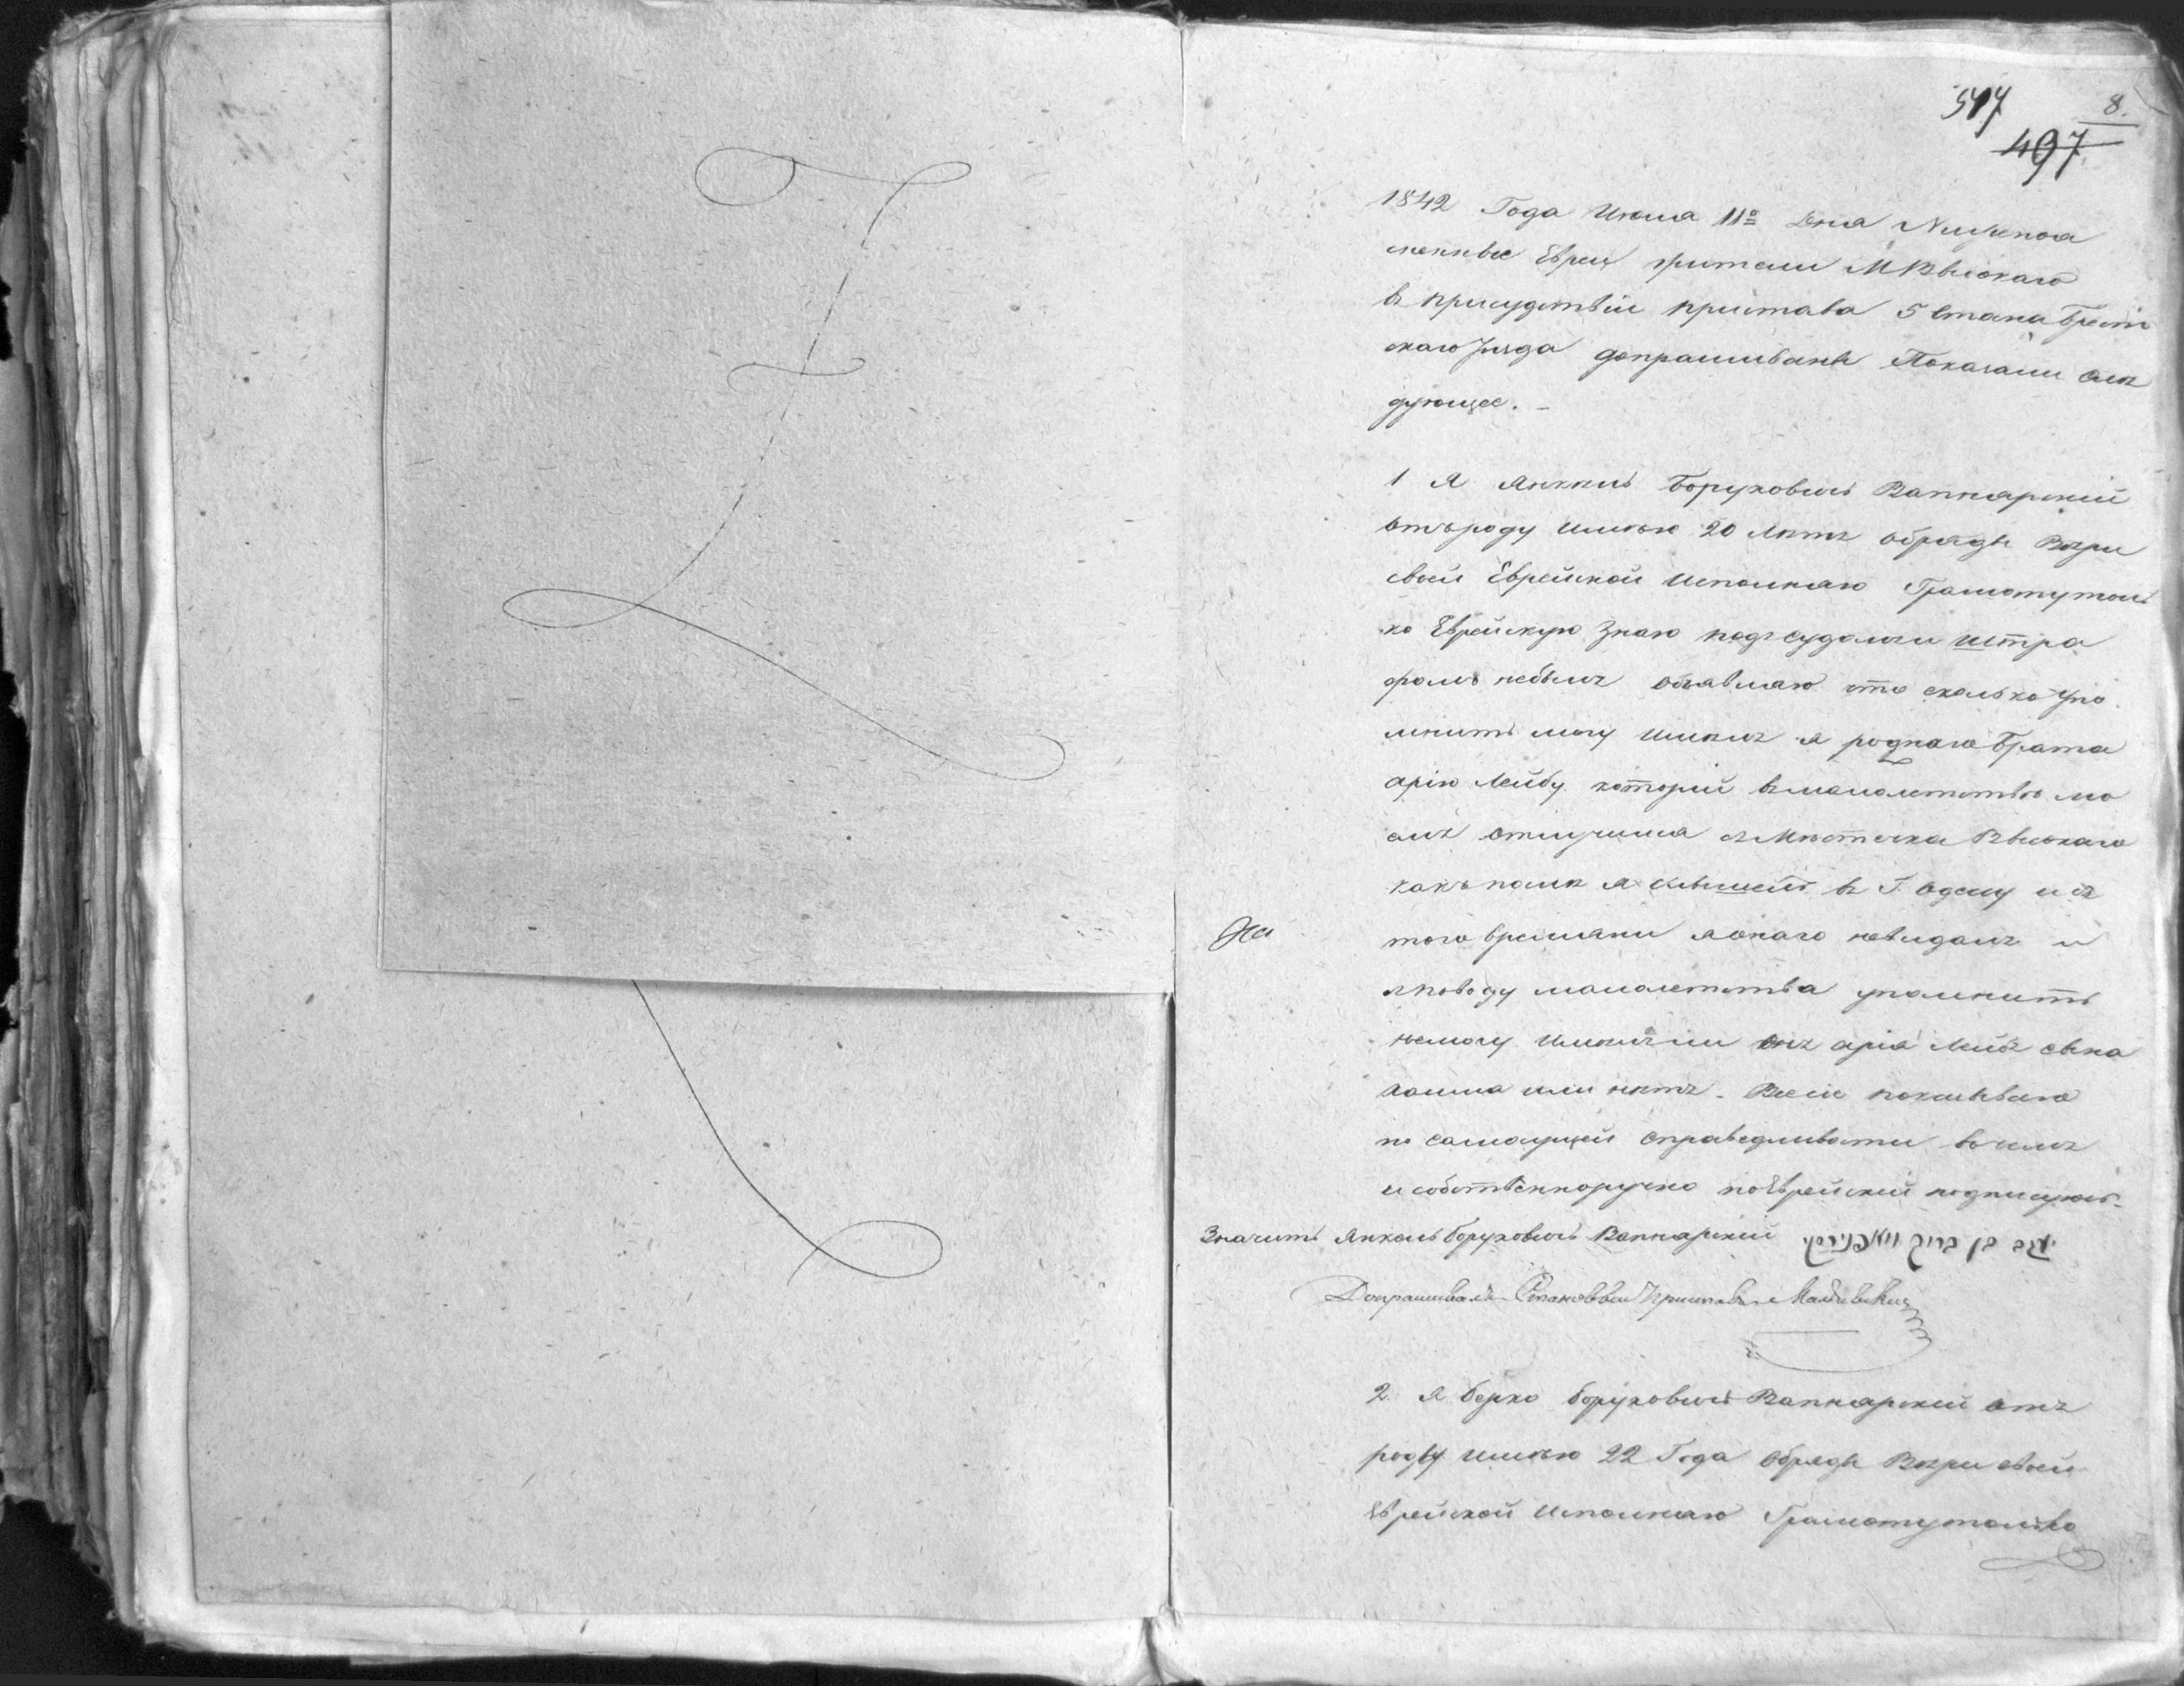 517 8.
497
1842 Года Июля 11го дня Нижепоя
менные Евреи жители М Высокаго
въ присудствіи пристава 5 Стана Брест
скаго уѣзда допрашиваны Показали Слѣ
дующее. –
1 Я Янкель Боруховичъ Вапнярскій
отъ роду имѣю 20 лѣтъ обряды Вѣры
своей Еврейской Исполняю Грамоту толь
ко Еврейскую знаю подъ судомъ и штра
фомъ небылъ объявляю что сколько упо
мнить могу имѣлъ я роднаго Брата
Арію Лейбу который въ малолетствѣ мо
емъ отлучился съ Мѣстечка Высокаго
какъ я въ Г. Одессу и съ
того времяни я онаго невидалъ и
поводу малолетства упомнить
немогу имѣлъ ли онъ Арія Лейба сына
или нѣтъ. Все сіе показываю
по самосущей справедливости въ чемъ
и собственноручно поеврейский подписуюсь
Значитъ Янкель Боруховичъ Вапнярскій יעקב בן ברוך וואפנירסקי
Допрашивалъ Становый Приставъ
2. Я Берко Боруховичъ Вапнярскій отъ
роду имѣю 22 Года обряды Вѣры своей
Еврейской Исполняю Грамоту только